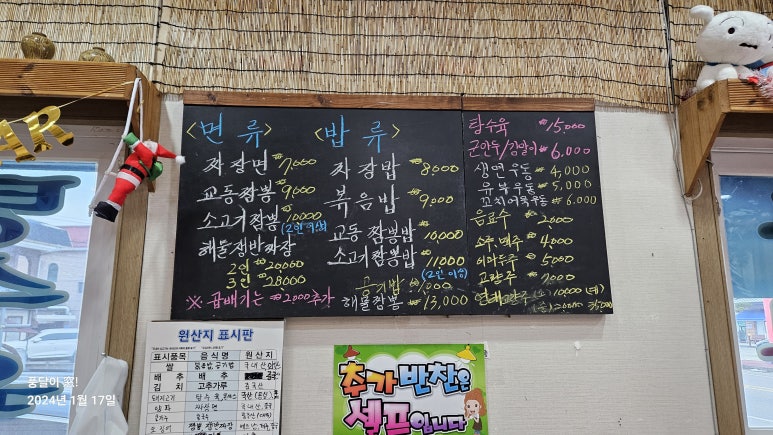 <면류>
짜장면 ₩7,000
교동짬뽕 ₩9,000
소고기짬뽕 ₩10,000
(2인 이상)
해물쟁반짜장
2인 ₩20,000
3인 ₩28,000
※ 곱배기는 ₩2000추가
<밥류>
짜장밥 ₩8,000
볶음밥 ₩9,000
교동짬뽕밥 ₩10,000
소고기짬뽕밥 ₩11,000
(2인 이상)
공기밥 ₩1,000
해물짬뽕 ₩13,000
탕수육 ₩15,000
군만두/김말이 ₩6,000
생면우동 ₩4,000
유부우동 ₩5,000
꼬치어묵우동 ₩6,000
음료수 ₩2000
소주, 맥주 ₩4,000
이과두주 ₩5000
고량주 ₩7000
연태고량주
원산지 표시판
표시품목 음식명 원산지
쌀 볶음밥, 공기밥 국내산
배추 배추
김치 고추가루 중국산
돼지고기 탕수육
양파 짜장면 국내산, 중국
오징어 짬뽕, 쟁반짜장
추가반찬은
셀프입니다
풍달이
2024년 1월 17일